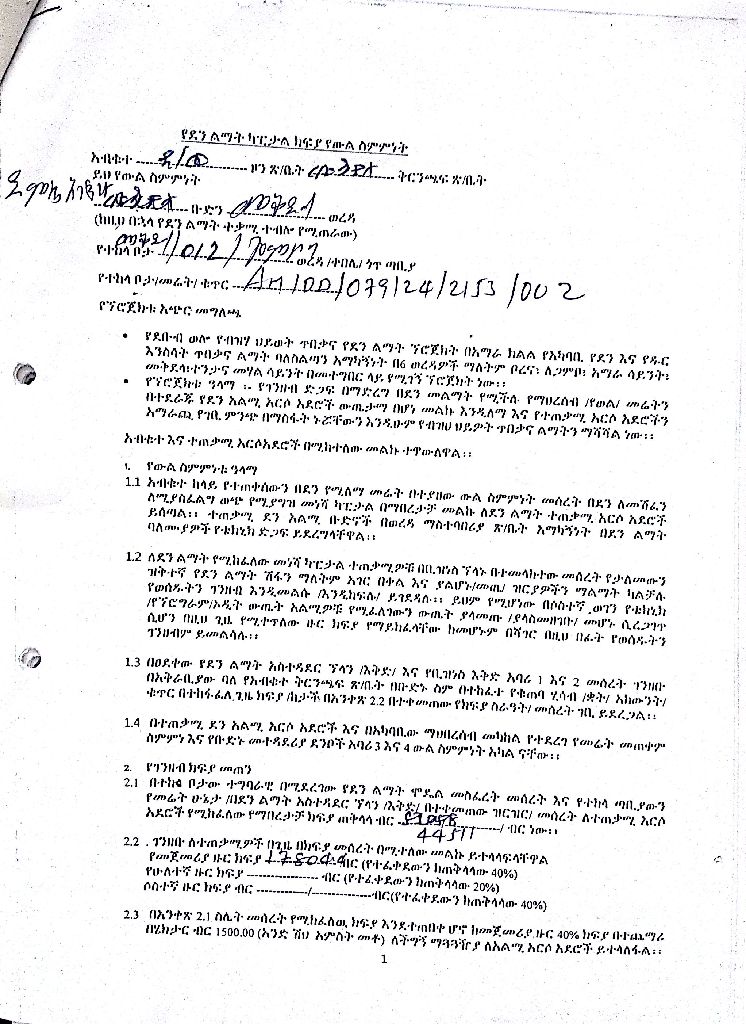 የደን ልማት ካፒታል ክፍያ የውል ስምምነት
አብቁተ ዞን ጽ/ቤት ቅርንጫፍ ጽ/ቤት
ይህ የውል ስምምነት
ቡድን ወረዳ
(ከዚህ በኋላ የደን ልማት ተቃሚ ተብሎ የሚጠራው)
የተከላ ቦታ /012/ ወረዳ /ቀበሌ/ ጎጥ ጣቢያ
የተከላ ቦታ/መሬት/ ቁጥር AM/DD/079/24/2153/002
የፕሮጀክቱ አጭር መግለጫ
• የደቡብ ወሎ የብዝሃ ህይወት ጥበቃና የደን ልማት ፕሮጀክት በአማራ ክልል የአካባቢ የደን እና የዱር
እንስሳት ጥበቃና ልማት ባለስልጣን አማካኝነት በ6 ወረዳዎች ማለትም ቦረና፣ ለጋምቦ፣ አማራ ሳይንት፣
መቅደላ፣ተንታና መሃል ሳይንት በመተግበር ላይ የሚገኝ ፕሮጀክት ነው፡፡
• የፕሮጀክቱ ዓላማ ፡- የገንዘብ ድጋፍ በማድረግ በደን መልማት የሚችሉ የማህረሰብ /የወል/ መሬትን
በተደራጁ የደን አልሚ አርሶ አደሮች ውጤታማ በሆነ መልኩ እንዲለማ እና የተጠቃሚ አርሶ አደሮችን
አማራጪ የገቢ ምንጭ በማስፋት ኑሯቸውን እንዲሁም የብዝሀ ህይዎት ጥበቃና ልማትን ማሻሻል ነው፡፡
አብቁተ እና ተጠቃሚ አርሶአደሮች በሚከተለው መልኩ ተዋውለዋል፡፡
1. የውል ስምምነቱ ዓላማ
1.1 አብቁተ ከላይ የተጠቀሰውን በደን የሚለማ መሬት በተያዘው ውል ስምምነት መሰረት በደን ለመሸፈን
ለሚያስፈልግ ወጭ የሚያግዝ መነሻ ካፒታል በማበረታቻ መልኩ ለደን ልማት ተጠቃሚ አርሶ አደሮች
ይሰጣል፡፡ ተጠቃሚ ደን አልሚ ቡድኖች በወረዳ ማስተባበሪያ ጽ/ቤት አማካኝነት በደን ልማት
ባለሙያዎች የቴክኒክ ድጋፍ ይደረግላቸዋል፡፡
1.2 ለደን ልማት የሚከፈለው መነሻ ካፒታል ተጠቃሚዎቹ በቢዝነስ ፕላኑ በተመላከተው መሰረት የታለመውን
ዝቅተኛ የደን ልማት ሽፋን ማለትም አገር በቀል እና ያልሆኑ/መጤ/ ዝርያዎችን ማልማት ካልቻሉ
የወሰዱትን ገንዘብ እንዲመልሱ /እንዲከፍሉ/ ይገደዳሉ፡፡ ይህም የሚሆነው በሶስተኛ ወገን የቴክኒክ
/የፕሮግራም/ኦዲት ውጤት አልሚዎቹ የሚፈለገውን ውጤት ያላመጡ /ያላስመዘገቡ/ መሆኑ ሲረጋገጥ
ሲሆን በዚህ ጊዜ የሚቀጥለው ዙር ክፍያ የማይከፈላቸው ከመሆኑም በሻገር በዚህ በፊት የወሰዱትን
ገንዘብም ይመልሳሉ፡፡
1.3 በፀደቀው የደን ልማት አስተዳደር ፕላን /እቅድ/ እና የቢዝነስ እቅድ አባሪ 1 እና 2 መሰረት ገንዘቡ
በአቅራቢያው ባለ የአብቁተ ቅርንጫፍ ጽ/ቤት በቡድኑ ስም በተከፈተ የቁጠባ ሂሳብ /ቋት/ አካውንት/
ቁጥር በተከፋፈለ ጊዜ ክፍያ /ከታች በአንቀጽ 2.2 በተቀመጠው የክፍያ ስራዓት/ መሰረት ገቢ ይደረጋል፡፡
1.4 በተጠቃሚ ደን አልሚ አርሶ አደሮች እና በአካባቢው ማህበረሰብ መካከል የተደረገ የመሬት መጠቀም
ስምምነ እና የቡድኑ መተዳደሪያ ደንቦች አባሪ 3 እና 4 ውል ስምምነት አካል ናቸው፡፡
2. የገንዘብ ክፍያ መጠን
2.1 በተከላ ቦታው ተግባራዊ በሚደረገው የደን ልማት ሞዴል መስፈረት መሰረት እና የተከላ ጣቢያውን
የመሬት ሁኔታ /በደን ልማት አስተዳደር ፕላን /እቅድ/ በተቀመጠው ዝርዝር/ መሰረት ለተጠቃሚ አርሶ
አደሮች የሚከፈለው የማበረታቻ ክፍያ ጠቅላላ ብር / ብር ነው፡፡
44511
2.2 . ገንዘቡ ለተጠቃሚዎች በጊዜ በክፍያ መሰረት በሚተለው መልኩ ይተላለፍላቸዋል
የመጀመሪያ ዙር ክፍያ 17804.4 ብር (የተፈቀደውን ከጠቅላላው 40%)
የሁለተኛ ዙር ክፍያ ------------------ ብር (የተፈቀደውን ከጠቅላላው 20%)
ሶስተኛ ዙር ክፍያ ብር ------------/--------------- ብር(የተፈቀደውን ከጠቅላላው 40%)
2.3 በአንቀጽ 2.1 ስሌት መሰረት የሚከፈለዉ ክፍያ እንደተጠበቀ ሆኖ ከመጀመሪያ ዙር 40% ክፍያ በተጨማሪ
በሄክታር ብር 1500.00 (አንድ ሽህ አምስት መቶ) ለችግኝ ማጓጓዥያ ለአልሚ አርሶ አደሮች ይተላለፋል፡፡
1